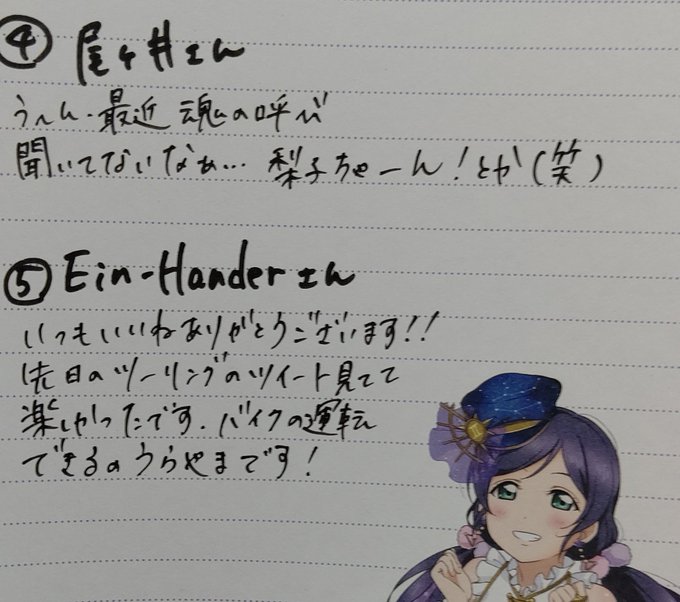 ④ 尾ヶ井さん
う〜ん、最近 魂の呼び
聞いてないなぁ… 梨子ちゃーん！とか(笑)
⑤ Ein-Handerさん
いつもいいねありがとうございます!!
先日のツーリングのツイート見てて
楽しかったです。バイクの運転
できるのうらやまです！